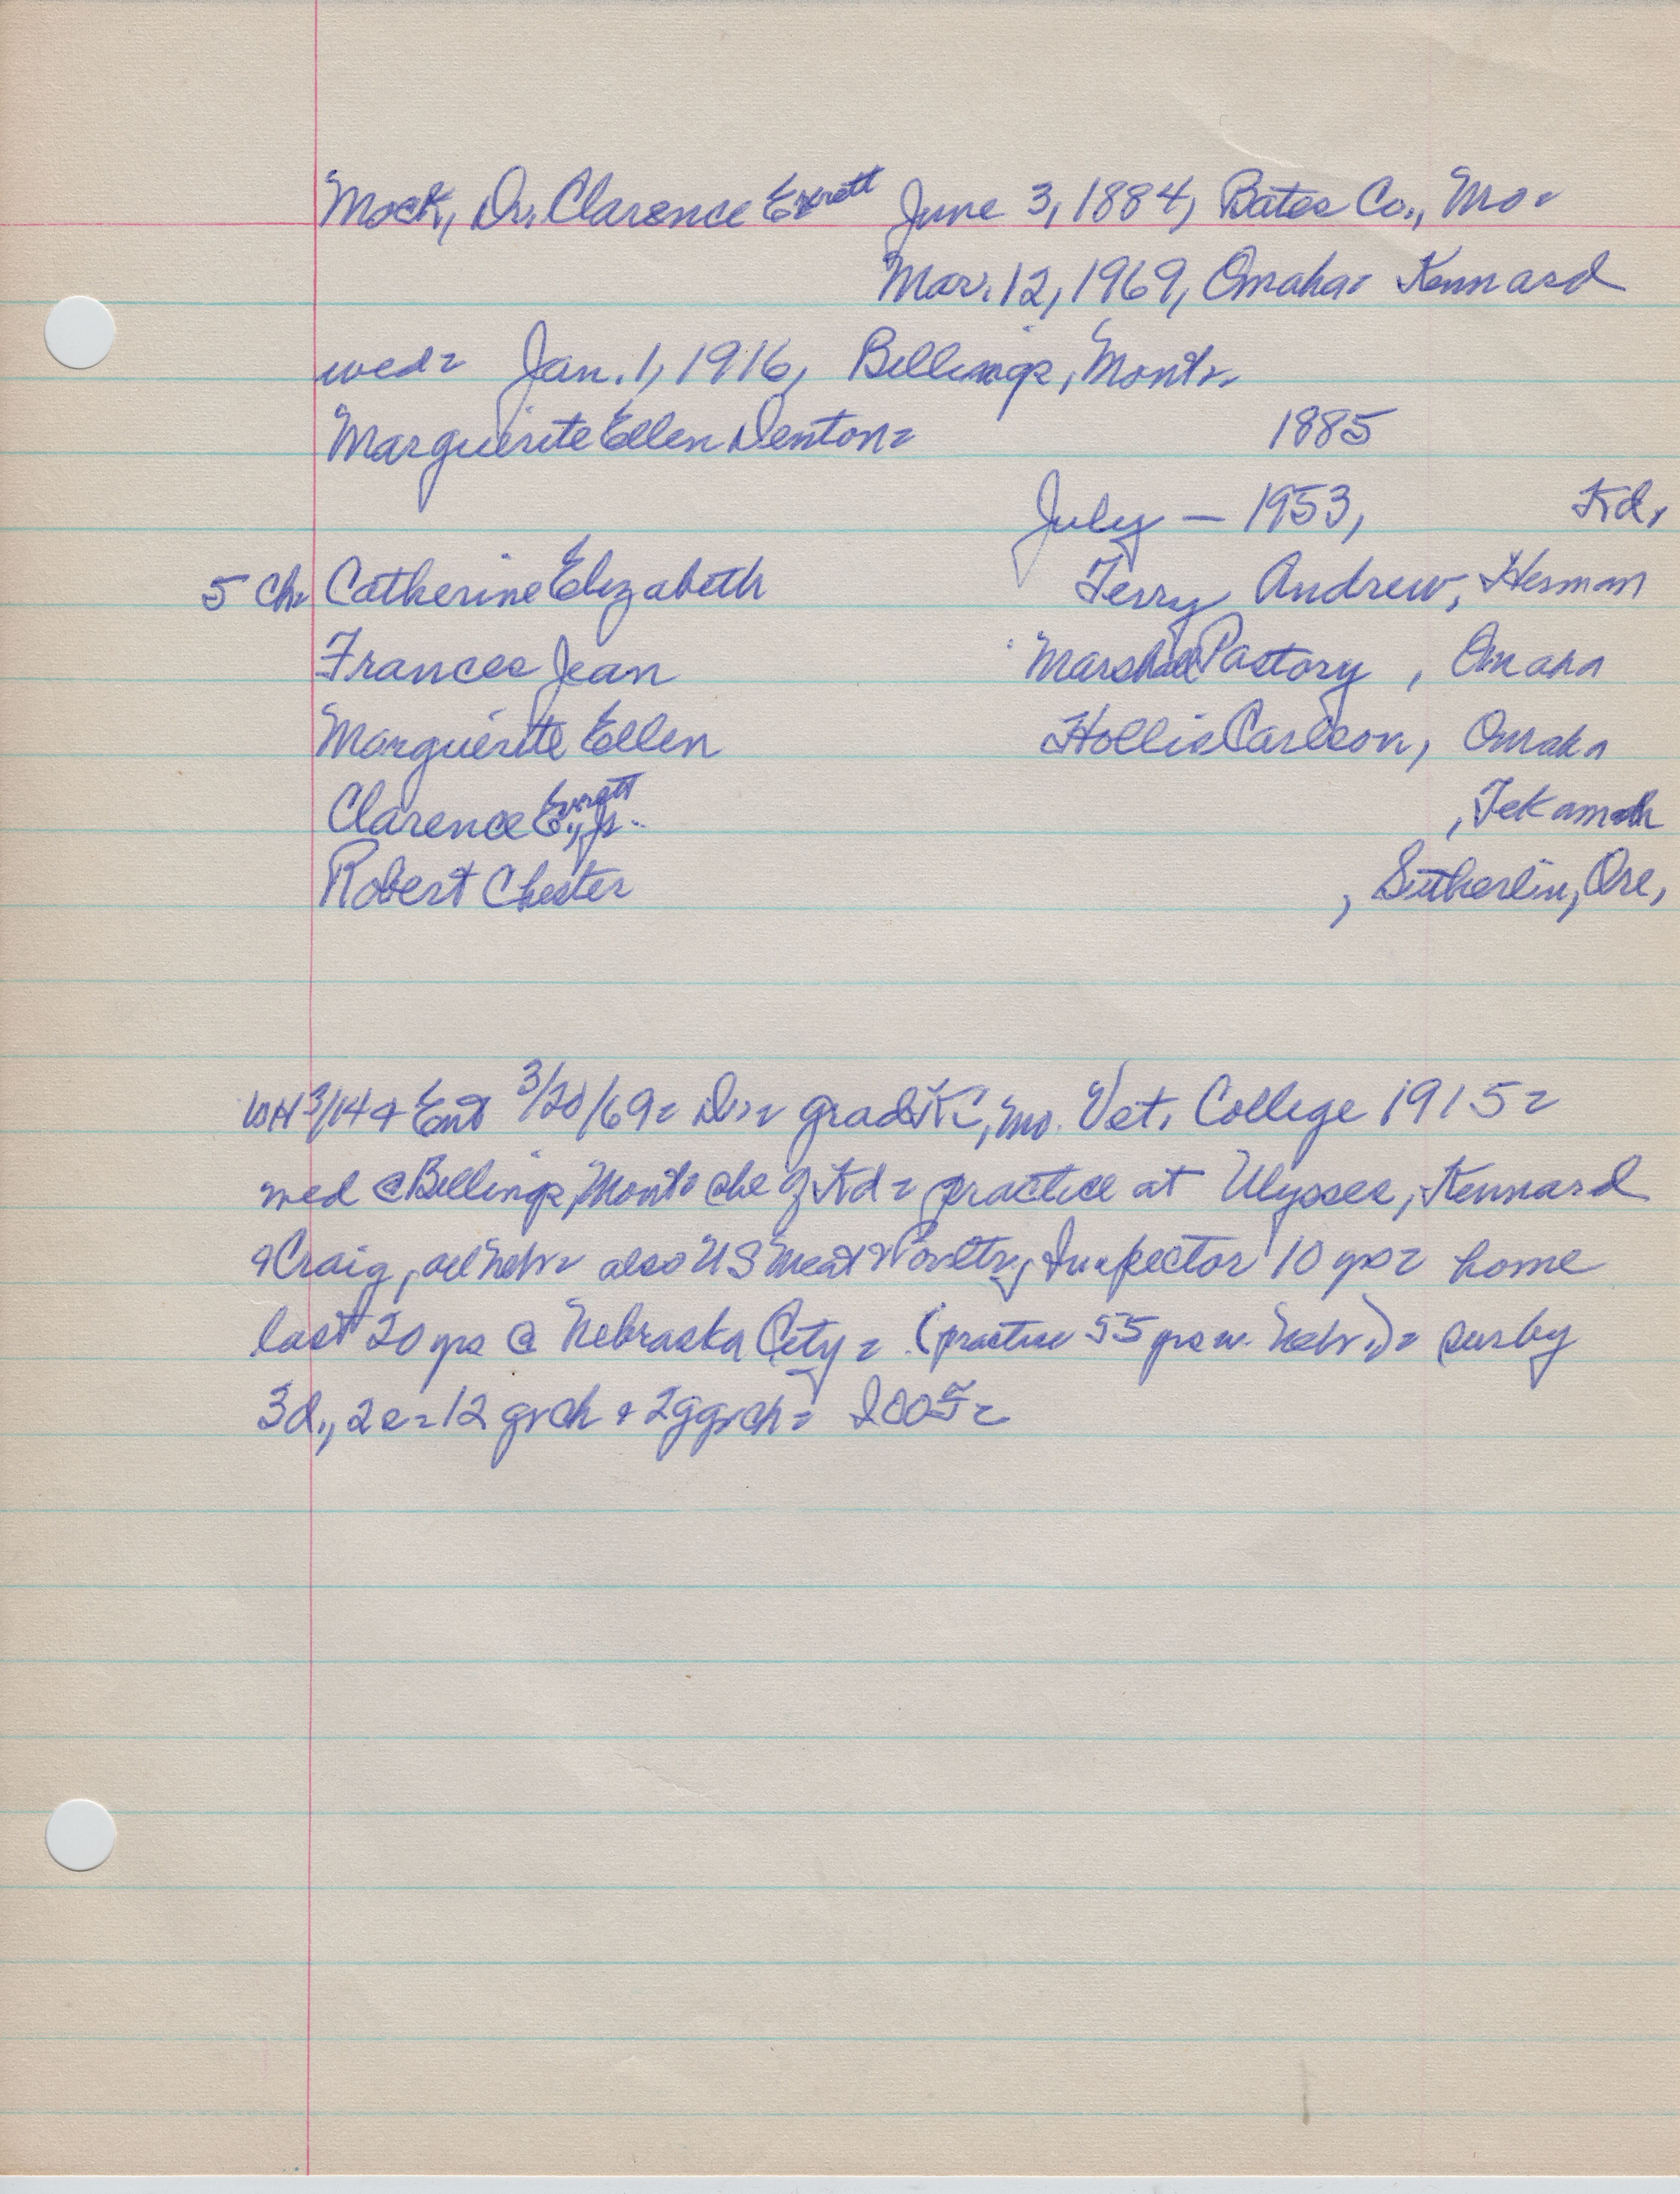 Mock, Dr. Clarence Everett June 3, 1884, Bates Co., Mo=
Mar. 12, 1969, Omaha= Kennard
wed= Jan. 1, 1916, Billings, Mont=
Marguerite Ellen Denton= 1885
July — 1953, Kd,
5 Ch= Catherine Elizabeth Terry Andrew, Herman
Frances Jean Marshall Pastory, Omaha
Marguerite Ellen Hollis Carlson, Omaha
Clarence Everett, Jr. , Tekamah
Robert Chester , Sutherlin, Ore,
WH 3/14 & Ent 3/20/69= Dr= grad KC, Mo. Vet. College 1915=
wed @ Billings, Mont= she of Kd= practice at Ulysses, Kennard
& Craig, all Nebr= also US Meat & Poultry Inspector 10 yrs= home
last 20 yrs @ Nebraska City= (practice 55 yrs Nebr.)= sur by
3d., 2s=12 grch & 2ggrch= IOOF=